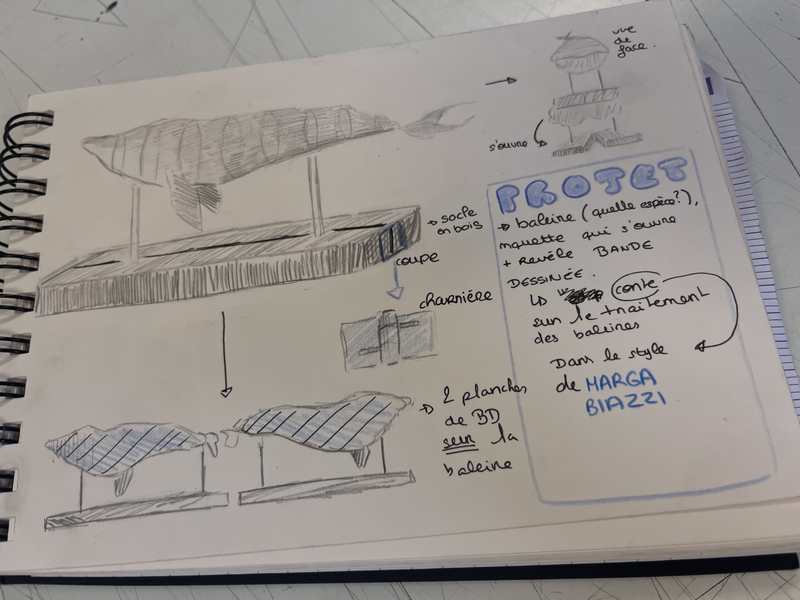 vue
de
face.
s'ouvre
→ socle
en bois
coupe
charnière
PROJET
→ baleine (quelle espèce?),
mquette qui s'ouvre
+ revèle BANDE
DESSINÉE.
↳ conte
sur le traitement
des baleines
Dans le style
de MARGA
BIAZZI
→ 2 planches
de BD
sur la
baleine